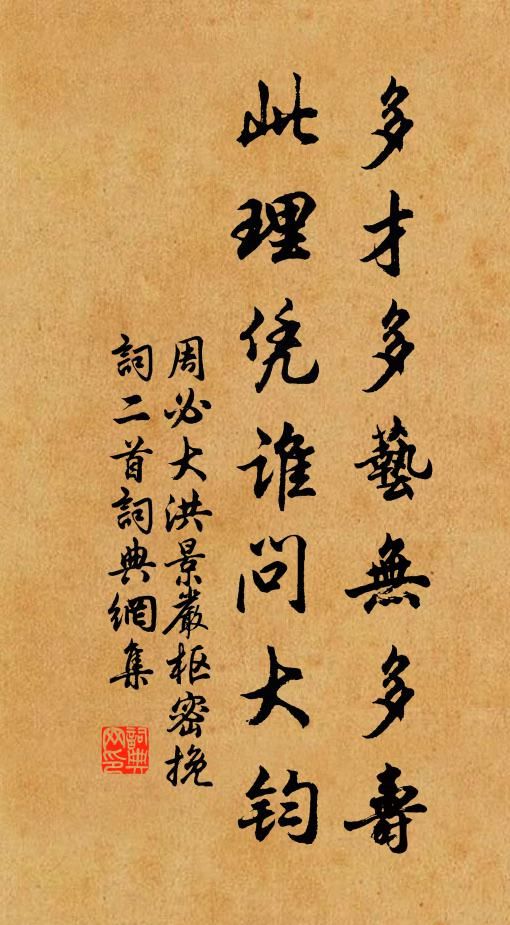 多才多藝無多壽
此理凭誰問大鈞
周必大洪景嚴枢密挽
詞二首詞典網集
詞典
网印